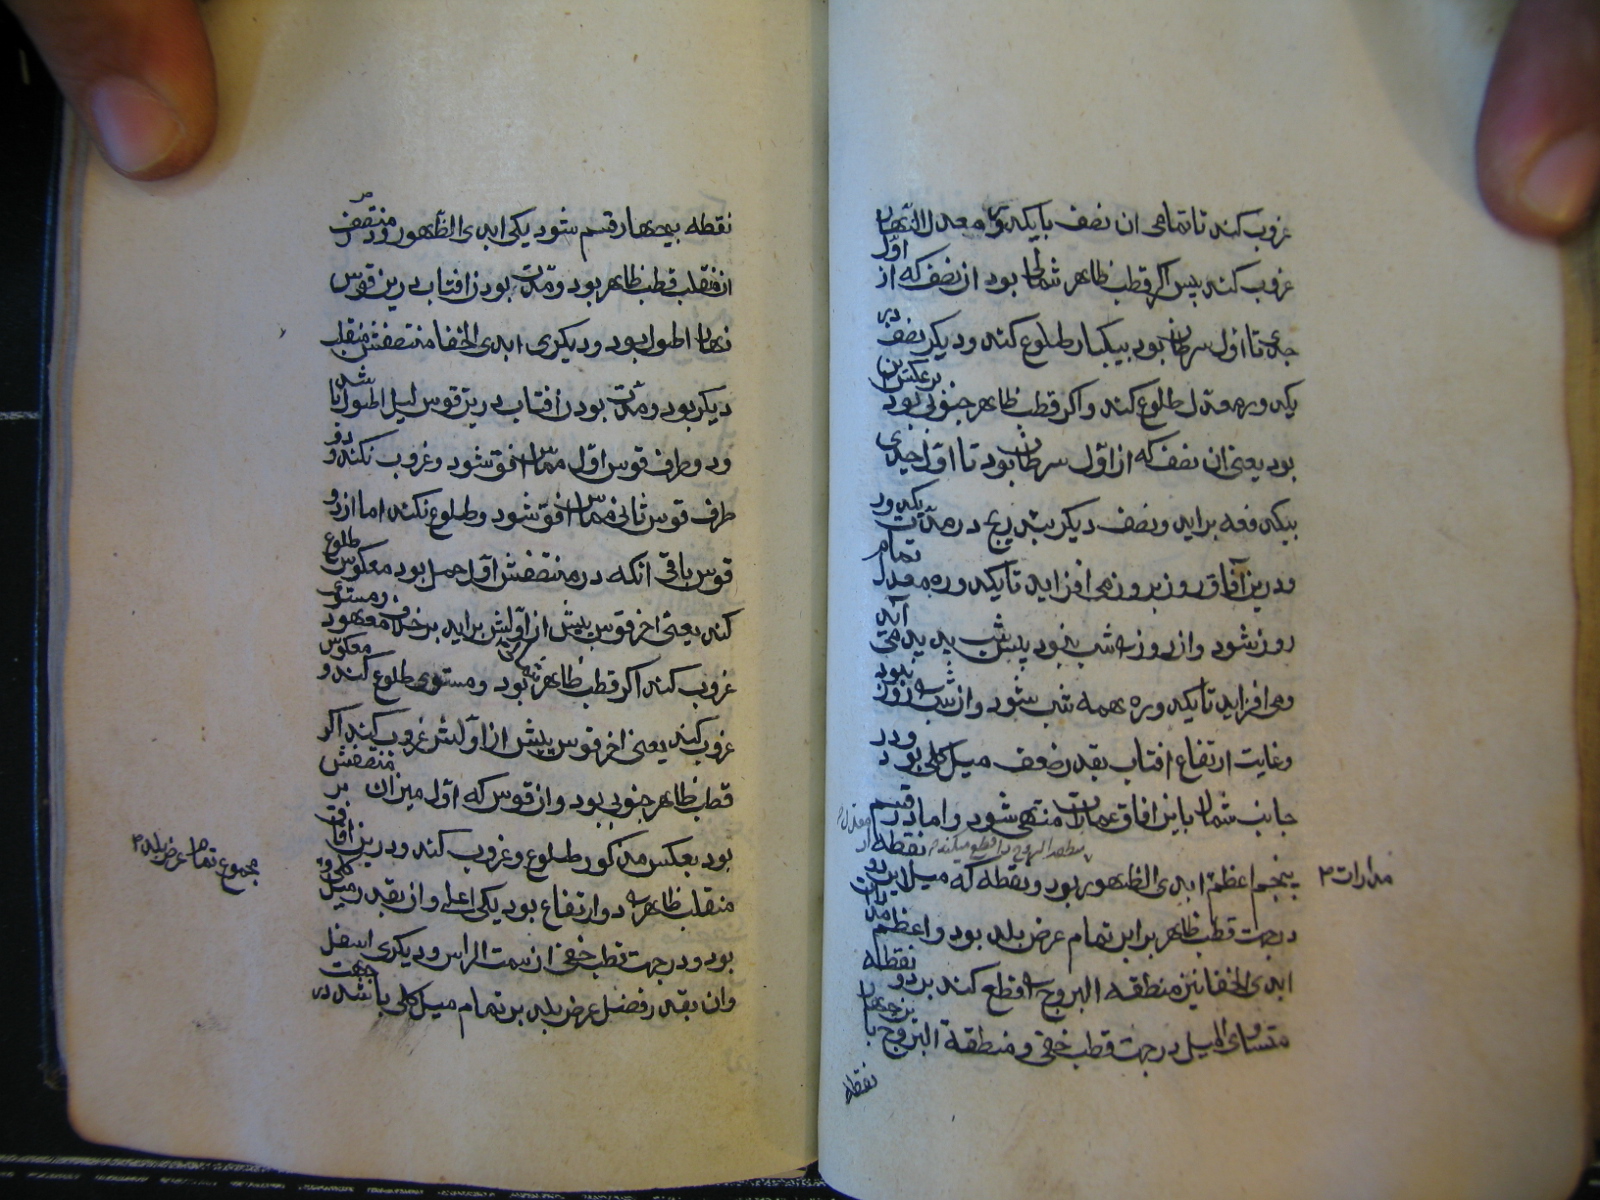 غروب کند تا تمامی ان نصف بایکدوره معدل النهار
غروب کند پس اکر قطب ظاهر شمالی بود از نصف که از اول
جدی تا اول سرطان بود بیکبار طلوع کند و دیکر نصف در
یکدوره معدل طلوع کند و اکر قطب ظاهر جنوبی بود برعکس این
بود یعنی ان نصف که از اول سرطان بود تا اول جدی
بیکدفعه براید و نصف دیکر بتدریج در مدت یکدور
و درین آفاق روز بروز می افزاید تا یکدوره معدل تمام
روز شود و از روز شب نبود پس شب پدید می آید
و می افزاید تا یکدوره همه شب شود و از شب روز نبود
و غایت ارتفاع افتاب بقدر ضعف میل کلی بود و در
جانب شمال باین افاق عمارت منتهی شود و اما در قسم
پنجم اعظم ابدی الظهور بود و نقطه که میل این دو نقطه از
مدارات ۲
در جهت قطب ظاهر برابر تمام عرض بلد بود و اعظم
ابدی الخفا نیز منطقه البروج را قطع کند بر دو نقطه
متساوی المیل در جهت قطب خفی و منطقة البروج باین چهار
نقطه
نقطه بچهار قسم شود یکی ابدی الظهور و منتصف
ان منقلب قطب ظاهر بود و مدت بودن افتاب درین قوس
نهار اطول بود و دیکری ابدی الخفا منتصفش منقلب
دیکر بود و مدت بودن افتاب درین قوس لیل اطول باشد
و دو طرف قوس اول مماس افق شود و غروب نکند و دو
طرف قوس ثانی مماس افق شود و طلوع نکند اما از دو
قوس باقی انکه در منتصفش اول حمل بود معکوس طلوع
کند یعنی اخر قوس پیش از اولش براید بر خلاف معهود و مستوی
غروب کند اکر قطب ظاهر شمالی بود و مستوی طلوع کند و معکوس
غروب کند یعنی اخر قوس پیش از اولش غروب کند اکر
قطب ظاهر جنوبی بود و ان قوس که اول میزان منتصفش
بود بعکس مذکور طلوع و غروب کند و درین آفاق
مجموع تمام عرض بلد ۲
منقلب ظاهر را دو ارتفاع بود یکی اعلی و ان بقدر میل کلی
بود و در جهت قطب خفی از سمت الراس و دیکری اسفل
وان بقدر فضل عرض بلد بر تمام میل کلی باشد در جهت